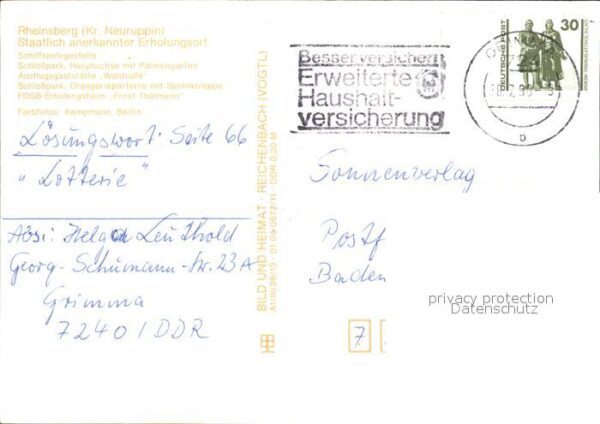 Rheinsberg (Kr. Neuruppin)
Staatlich anerkannter Erholungsort
Schiffsanlegestelle
Schloßpark, Hauptachse mit Palmengarten
Ausflugsgaststätte „Waldcafé"
Schloßpark, Orangerieparterre mit Sphinxtreppe
FDGB-Erholungsheim „Ernst Thälmann"
Farbfotos: Kampmann, Berlin
Lösungswort: Seite 66
„Lotterie"
Abs: Helga Leuthold
Georg-Schumann-Str. 23A
Grimma
7240 / DDR
BILD UND HEIMAT · REICHENBACH (VOGTL)
DDR 0,20 M
Besser versichert
Erweiterte
Haushalt-
versicherung
b
30
DEUTSCHE POST
Sonnenverlag
Postf
Baden
privacy protection
Datenschutz
7